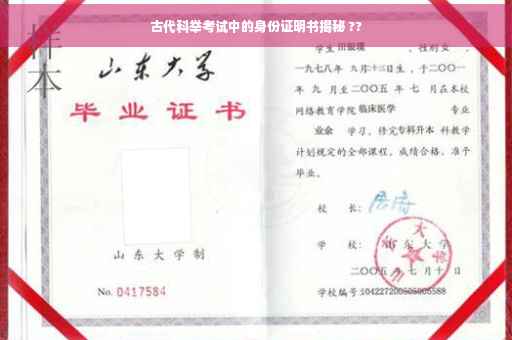 古代科举考试中的身份证明书揭秘 ??
样本
山东大学
毕业证书
山东大学制
No. 0417584
学生 田银瑛 ，性别女 ，
一九七八年 九月十三日生，于二〇〇一
年 九 月至二〇〇五 年 七 月在本校
网络教育学院 临床医学 专业
业余 学习，修完专科升本 科教学
计划规定的全部课程，成绩合格，准予
毕业。
校 长：
学 校： 山东大学
二〇〇五年七月十日
学校编号：104227200505005588